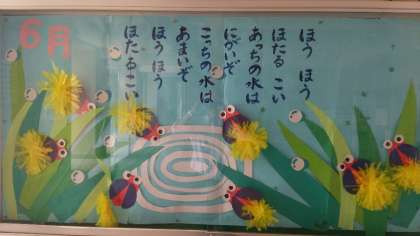 6月
ほう ほう
ほたる こい
あっちの水は
にがいぞ
こっちの水は
あまいぞ
ほう ほう
ほたるこい